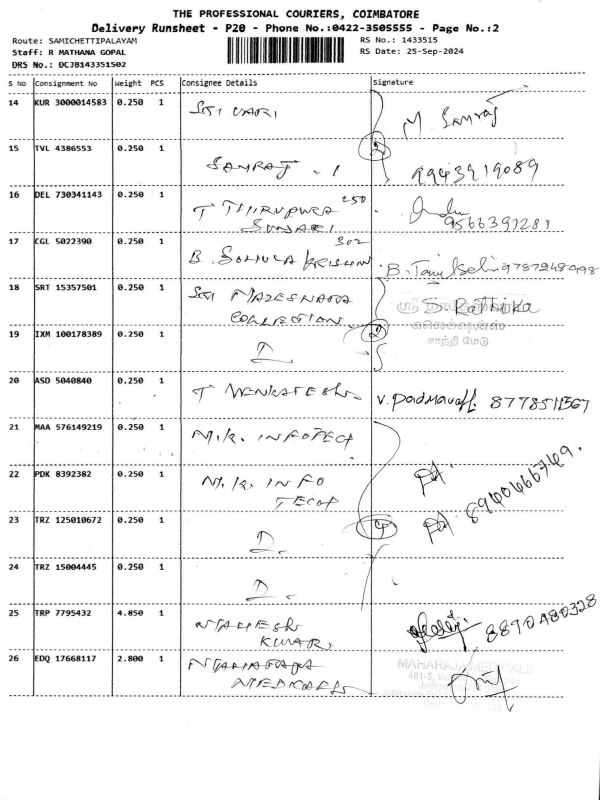 THE PROFESSIONAL COURIERS, COIMBATORE
Delivery Runsheet - P20 - Phone No.:0422-3505555 - Page No.:2
Route: SAMICHETTIPALAYAM
RS No.: 1433515
Staff: R MATHANA GOPAL
RS Date: 25-Sep-2024
DRS No.: DCJB143351502
S No Consignment No Weight PCS Consignee Details Signature
14 KUR 3000014583 0.250 1 SRI VARI M. Samraj
15 TVL 4386553 0.250 1 SAMRAJ . 1 9943919089
2
16 DEL 730341143 0.250 1 T THIRUPURA 250 Indhu
SUNDARI 9566397281
17 CGL 5022390 0.250 1 B. 302 B. 9787248998
18 SRT 15357501 0.250 1 SRI S. Rathika
COLLECTION
2
19 IXM 100178389 0.250 1
சாந்தி மேடு
20 ASD 5040840 0.250 1 T VENKATESH V. Padmavathi 8778511567
21 MAA 576149219 0.250 1 M.K. INFOTECH
22 PDK 8392382 0.250 1 M.K. INFO
TECH
8940466749.
23 TRZ 125010672 0.250 1
4
24 TRZ 15004445 0.250 1
25 TRP 7795432 4.850 1 MAHESH 8870480328
KUMAR
26 EDQ 17668117 2.800 1 MAHARAJA
MEDICALS
MAHARAJA MEDICALS